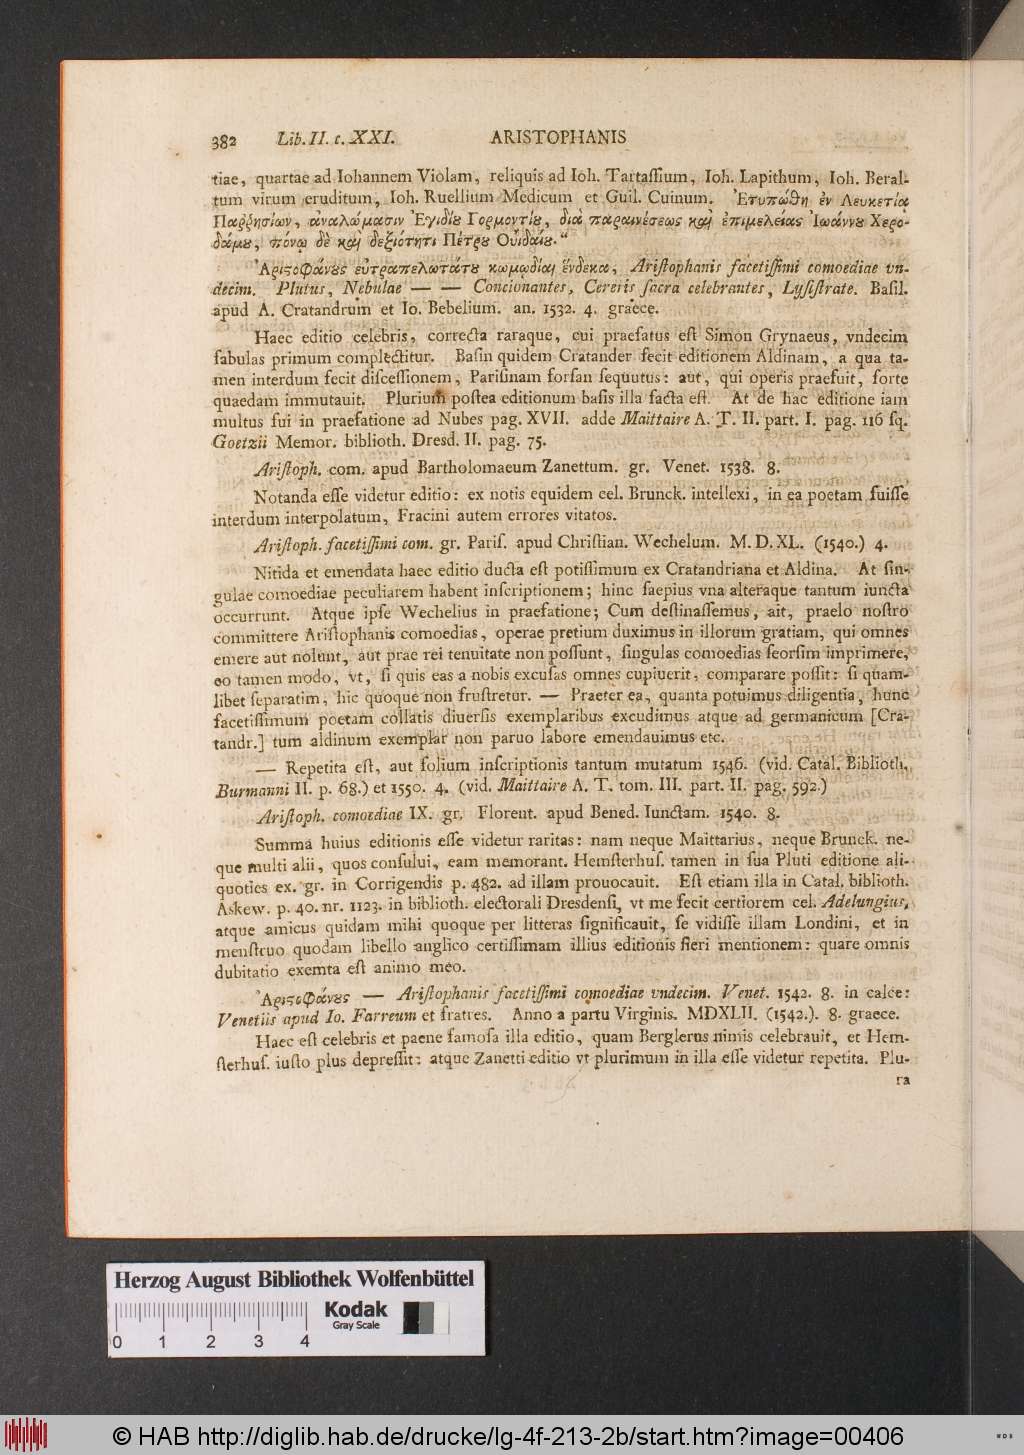 382 Lib. II. c. XXI. ARISTOPHANIS
tiae, quartae ad Iohannem Violam, reliquis ad Ioh. Tartaſſium, Ioh. Lapithum, Ioh. Beral-
tum virum eruditum, Ioh. Ruellium Medicum et Guil. Cuinum. Ἐτυπώθη ἐν Λευκετίᾳ
Παῤῥησίων, ἀναλώμασιν Ἐγιδίου Γορμοντίου, διὰ παραινέσεως καὶ ἐπιμελείας Ἰωάννου Χερο-
δάμου, πόνῳ δὲ καὶ δεξιότητι Πέτρου Οὐιδαίου.“
Ἀριστοφάνους εὐτραπελωτάτου κωμῳδίαι ἕνδεκα, Ariſtophanis facetiſſimi comoediae vn-
decim. Plutus, Nebulae — — Concionantes, Cereris ſacra celebrantes, Lyſiſtrate. Baſil.
apud A. Cratandrum et Io. Bebelium. an. 1532. 4. graece.
Haec editio celebris, correcta raraque, cui praefatus eſt Simon Grynaeus, vndecim
fabulas primum complectitur. Baſin quidem Cratander fecit editionem Aldinam, a qua ta-
men interdum fecit diſceſſionem, Pariſinam forſan ſequutus: aut, qui operis praefuit, forte
quaedam immutauit. Plurium poſtea editionum baſis illa facta eſt. At de hac editione iam
multus fui in praefatione ad Nubes pag. XVII. adde Maittaire A. T. II. part. I. pag. 116 ſq.
Goetzii Memor. biblioth. Dresd. II. pag. 75.
Ariſtoph. com. apud Bartholomaeum Zanettum. gr. Venet. 1538. 8.
Notanda eſſe videtur editio: ex notis equidem cel. Brunck. intellexi, in ea poetam fuiſſe
interdum interpolatum, Fracini autem errores vitatos.
Ariſtoph. facetiſſimi com. gr. Pariſ. apud Chriſtian. Wechelum. M. D. XL. (1540.) 4.
Nitida et emendata haec editio ducta eſt potiſſimum ex Cratandriana et Aldina. At ſin-
gulae comoediae peculiarem habent inſcriptionem; hinc ſaepius vna alteraque tantum iuncta
occurrunt. Atque ipſe Wechelius in praefatione; Cum deſtinaſſemus, ait, praelo noſtro
committere Ariſtophanis comoedias, operae pretium duximus in illorum gratiam, qui omnes
emere aut nolunt, aut prae rei tenuitate non poſſunt, ſingulas comoedias ſeorſim imprimere,
eo tamen modo, vt, ſi quis eas a nobis excuſas omnes cupiuerit, comparare poſſit: ſi quam-
libet ſeparatim, hic quoque non fruſtretur. — Praeter ea, quanta potuimus diligentia, hunc
facetiſſimum poetam collatis diuerſis exemplaribus excudimus atque ad germanicum [Cra-
tandr.] tum aldinum exemplar non paruo labore emendauimus etc.
— Repetita eſt, aut folium inſcriptionis tantum mutatum 1546. (vid. Catal. Biblioth.
Burmanni II. p. 68.) et 1550. 4. (vid. Maittaire A. T. tom. III. part. II. pag. 592.)
Ariſtoph. comoediae IX. gr. Florent. apud Bened. Iunctam. 1540. 8.
Summa huius editionis eſſe videtur raritas: nam neque Maittarius, neque Brunck. ne-
que multi alii, quos conſului, eam memorant. Hemſterhuſ. tamen in ſua Pluti editione ali-
quoties ex. gr. in Corrigendis p. 482. ad illam prouocauit. Eſt etiam illa in Catal. biblioth.
Askew. p. 40. nr. 1123. in biblioth. electorali Dresdenſi, vt me fecit certiorem cel. Adelungius,
atque amicus quidam mihi quoque per litteras ſignificauit, ſe vidiſſe illam Londini, et in
menſtruo quodam libello anglico certiſſimam illius editionis fieri mentionem: quare omnis
dubitatio exemta eſt animo meo.
Ἀριστοφάνους — Ariſtophanis facetiſſimi comoediae vndecim. Venet. 1542. 8. in calce:
Venetiis apud Io. Farreum et fratres. Anno a partu Virginis. MDXLII. (1542.). 8. graece.
Haec eſt celebris et paene famoſa illa editio, quam Berglerus nimis celebrauit, et Hem-
ſterhuſ. iuſto plus depreſſit: atque Zanetti editio vt plurimum in illa eſſe videtur repetita. Plu-
ra
Herzog August Bibliothek Wolfenbüttel
Kodak
Gray Scale
0 1 2 3 4
© HAB http://diglib.hab.de/drucke/lg-4f-213-2b/start.htm?image=00406